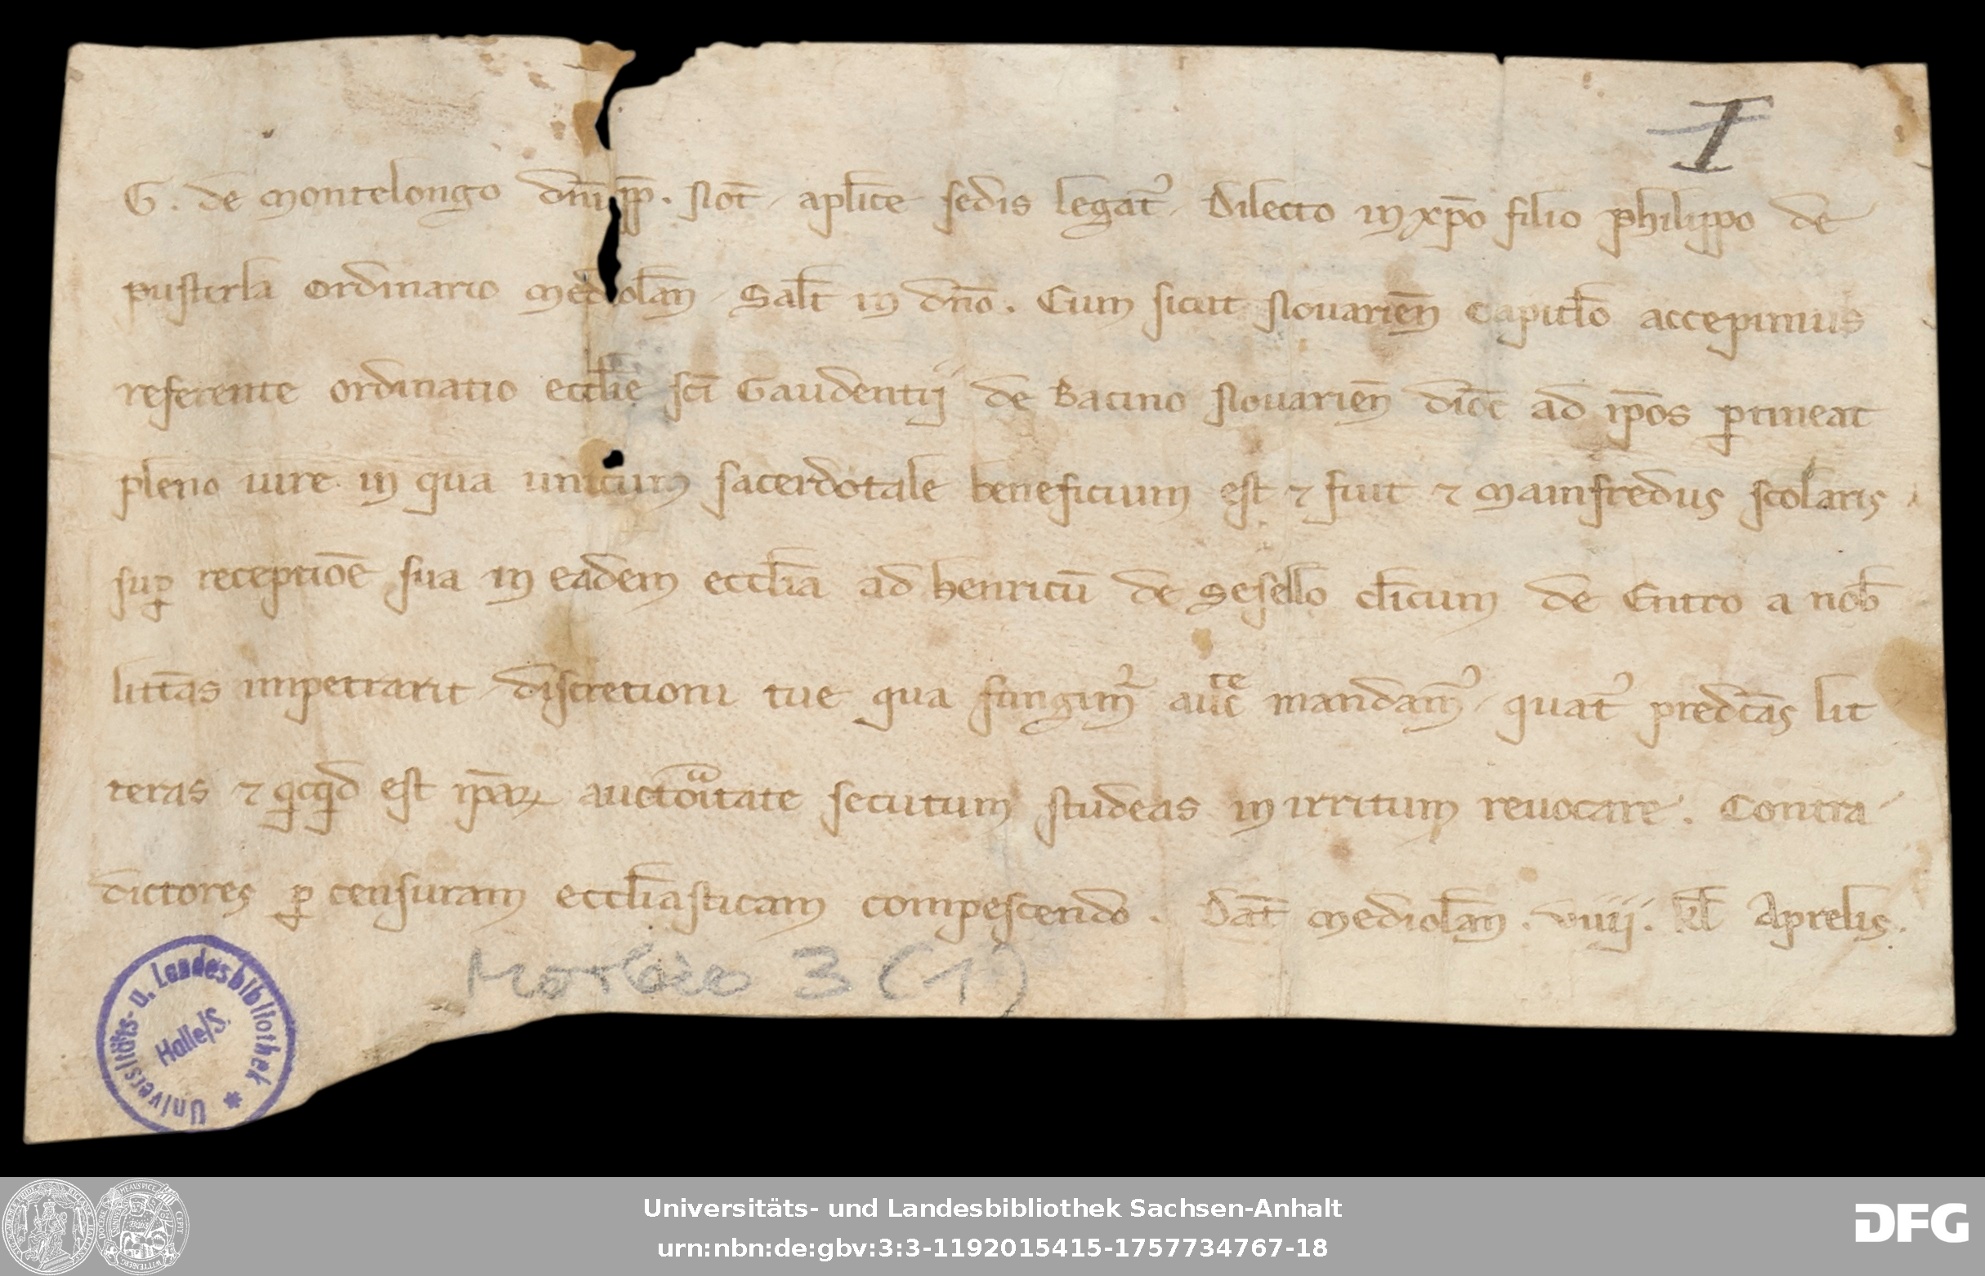 I
G. de Montelongo dn̄i pp̄. Not̄. apl̄ice sedis legat᾿. Dilecto in xp̄o filio philippo de
pusterla ordinario Mediolan̄. Sal̄t in dn̄o. Cum sicut Nouarien̄ Capitl̄o accepimus
referente ordinatio eccl̄ie sc̄i Gaudentij de Bacino Nouarien̄ dioc̄ ad ip̄os ꝑtineat
pleno iure in qua unicum sacerdotale beneficium est ⁊ fuit ⁊ Mainfredus scolaris
suꝑ receptiōe sua in eadem eccl̄ia ad henricū de Sesell̄o cl̄icum de Entro a nob̄
litt̄as impetrarit discretioni tue qua fungim᾿ auc̄te mandam᾿. quat᾿ predc̄as lit
teras ⁊ qͥcqͥd est ip̄aꝝ auctoͣitate secutum studeas in irritum reuocare. Contra
dictores ꝑ censuram eccl̄iasticam compescendo. Dat̄ Mediolan̄. viiij. kl̄ Aprelis.
Morbio 3 (1)
Universitäts- u. Landesbibliothek
Halle/S.
Universitäts- und Landesbibliothek Sachsen-Anhalt
urn:nbn:de:gbv:3:3-1192015415-1757734767-18
DFG